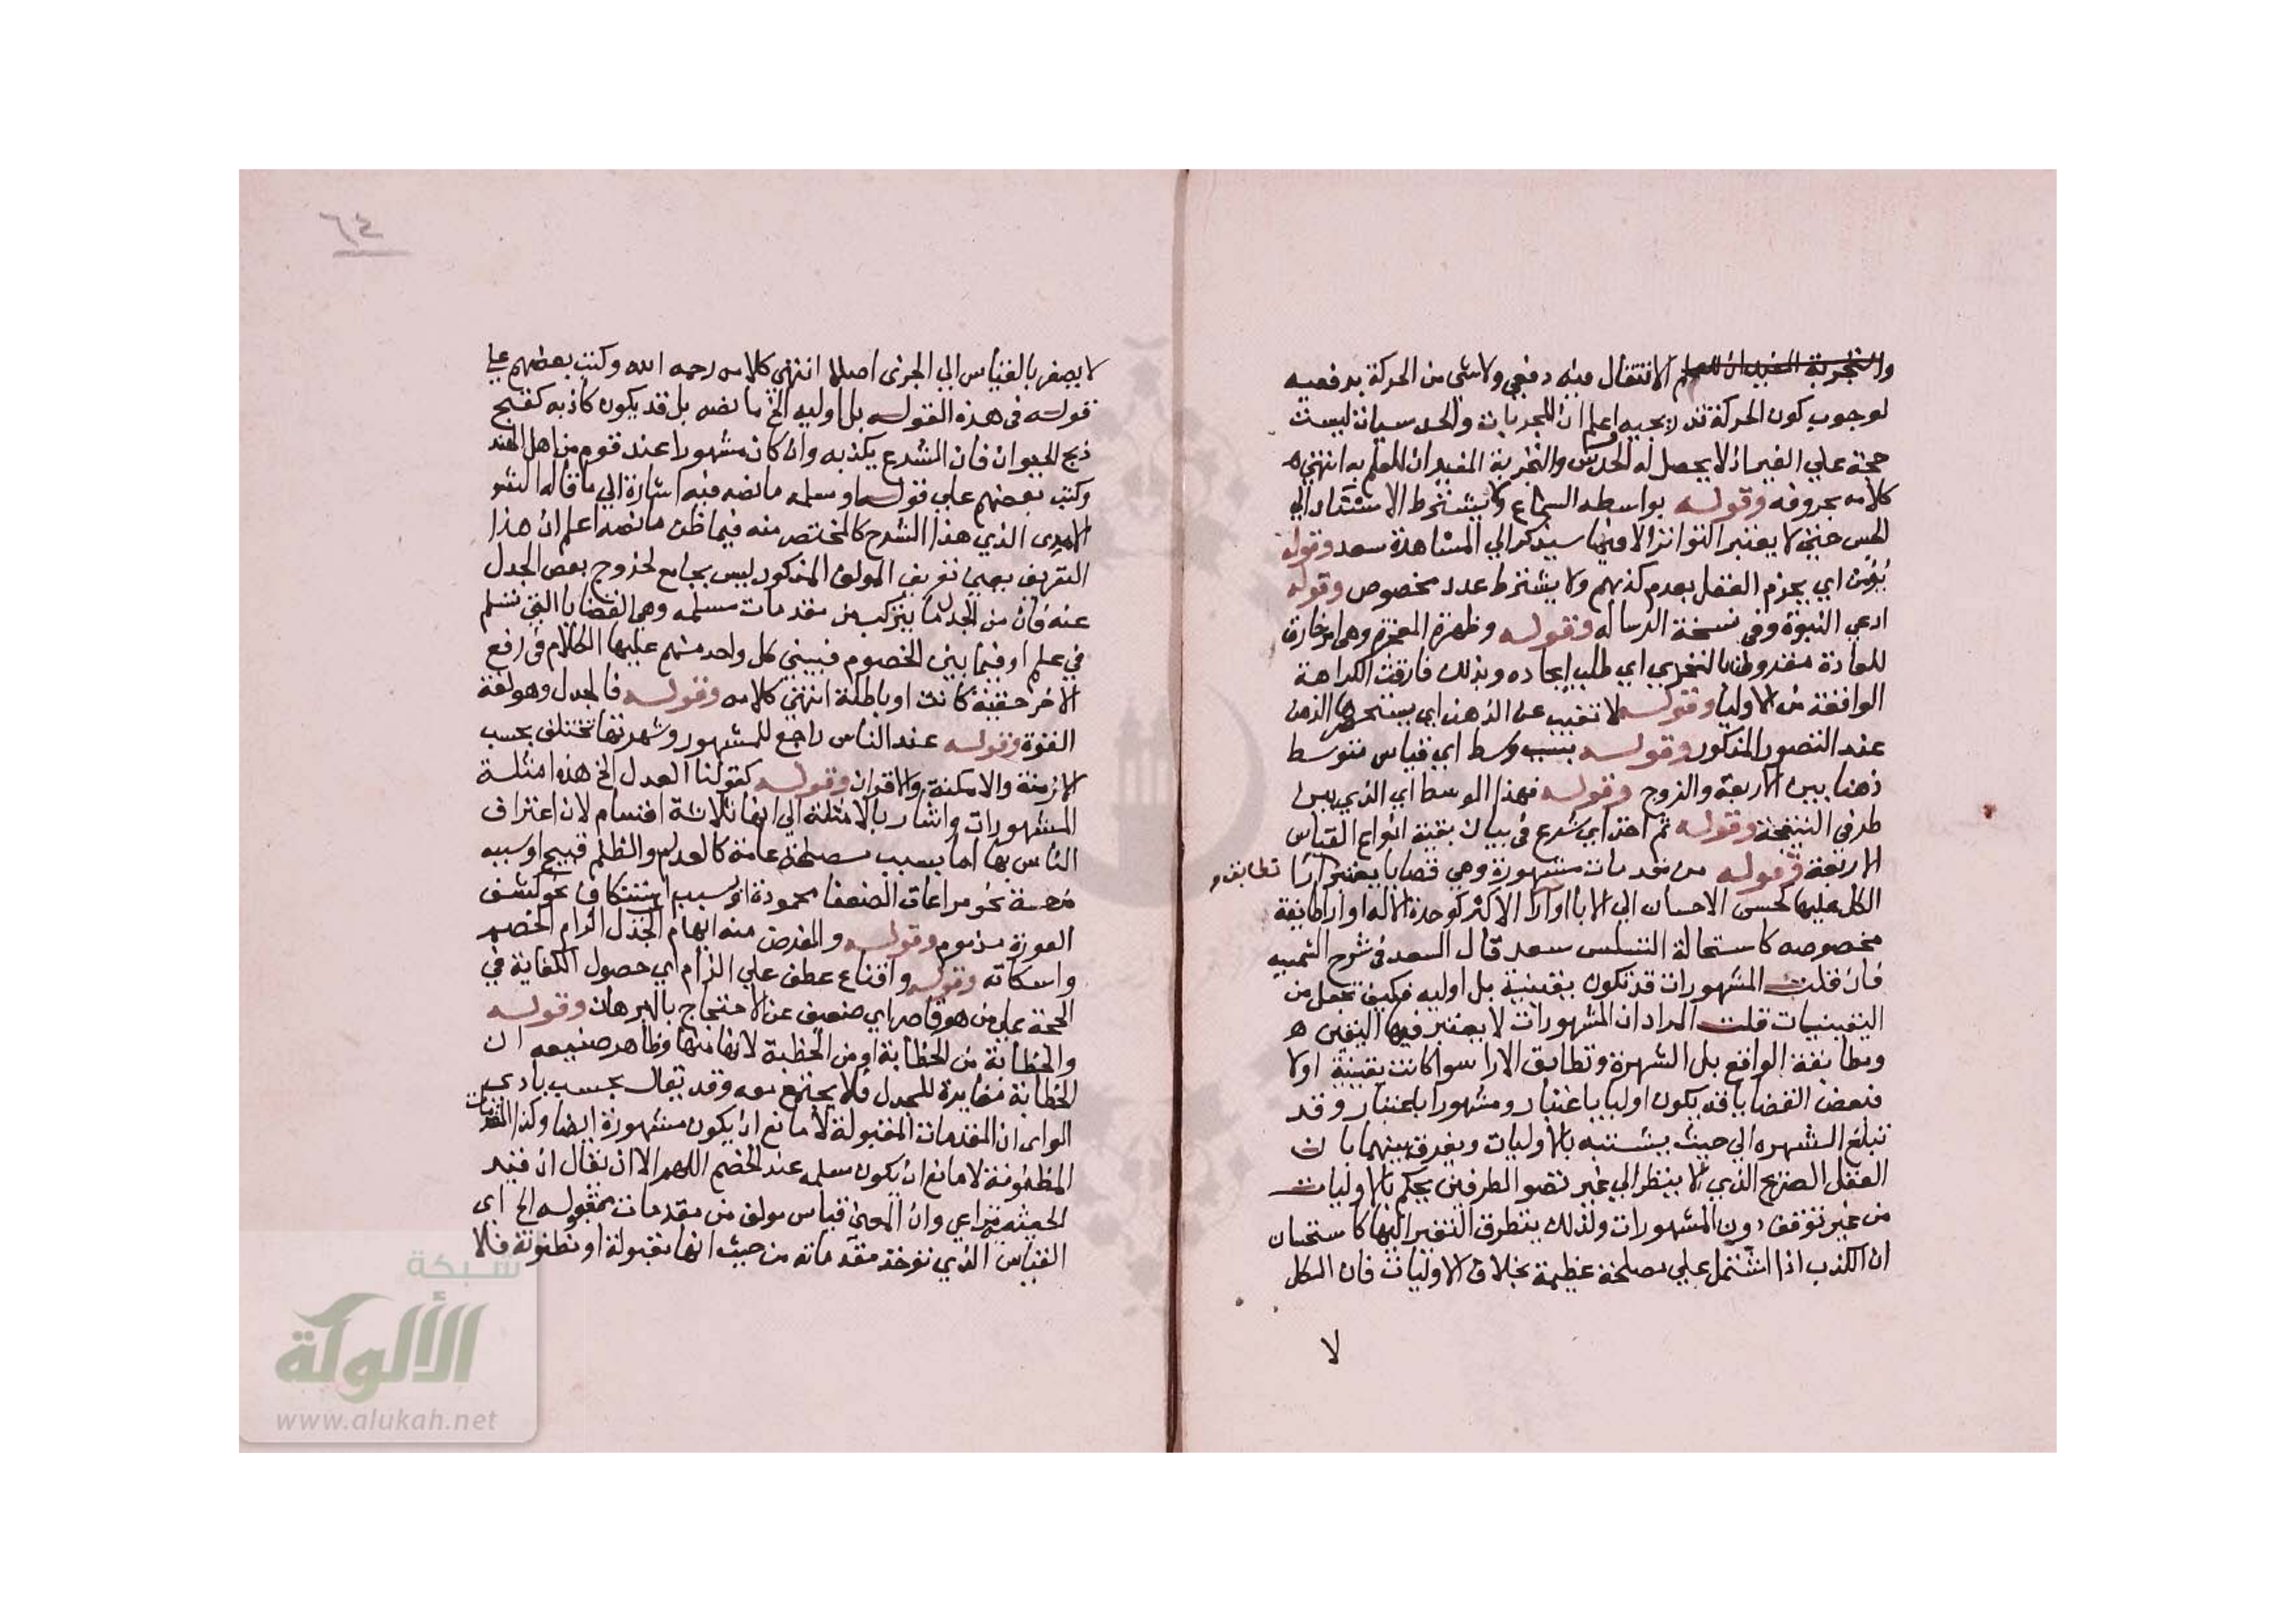 الانتقال فيه دفعي ولا شي من الحركة بدفعيه
لوجوب كون الحركة تدريجيه اعلم ان المجربات والحدسيات ليست
حجة علي الغير اذ لا يحصل له الحدس والتجربة المفيدان للعلم به انتهي ه
كلامه بحروفه وقوله بواسطه السماع ولا يشترط الاستناد الي
الحس حتي لا يعتبر التواتر الا فيما سيذكر الي المشاهدة سعد وقوله
يؤمن اي يجزم العقل بعدم كذبهم ولا يشترط عدد مخصوص وقوله
ادعي النبوة وفي نسخة الرساله وقوله وظهرة المعجزة وهي امر خارق
للعادة مقرون بالتحدي اي طلب ايجاده وبذلك فارقت الكراهة
الواقعة من الاوليا وقوله لا تغيب عن الذهن اي يستحضرها الذهن
عند التصور المذكور وقوله بسبب وسط اي قياس متوسط
ذهنا بين الاربعة والزوج وقوله فهذا الوسط اي الذي بين
طرفي النتيجة وقوله ثم اخذ اي شرع في بيان بقية انواع القياس
الاربعة وقوله من مقدمات مشهورة وهي قضايا يعتبر ارا تطابق و
الكل عليها كحسن الاحسان الي الابا او آرا الاكثر كوحدة الاله او ارا طايفة
مخصوصه كاستحالة التسلسل سعد قال السعد في شرح الشمسيه
فان قلت المشهورات قد تكون يقينية بل اوليه فكيف تجعل من
اليقينيات قلت المراد ان المشهورات لا يعتبر فيها اليقين ه
ومطابقة الواقع بل الشهرة وتطابق الارا سوا كانت يقينية اولا
فبعض القضايا قد يكون اوليا باعتبار ومشهورا باعتبار وقد
تبلغ الشهره الي حيث يشتبه بالاوليات ويفرق بينهما بان
العقل الصريح الذي لا ينظر الي غير تصو الطرفين يحكم بالاوليات
من غير توقف دون المشهورات ولذلك يتطرق التغير اليها كاستحسان
ان الكذب اذا اشتمل علي مصلحة عظيمة بخلاف الاوليات فان الكل
لا
٦٤
لا يصغر بالقياس الي الجزئ اصلا انتهي كلامه رحمه الله وكتب بعضهم علي
قوله في هذه القوله بل اوليه الخ ما نصه بل قد يكون كاذبه كقبح
ذبح الحيوان فان الشرع يكذبه وان كان مشهورا عند قوم من اهل الهند
وكتب بعضهم علي قوله او مسلمه ما نصه فيه اشارة الي ما قاله
الذي هذا الشرح كالمختصر منه فيما ظن ما نصه اعلم ان هذا
التعريف يعني تعريف المولف المذكور ليس بجامع لخروج بعض الجدل
عنه فان من الجدل ما يتركب من مقدمات مسلمه وهي القضايا التي تسلم
في علم او فيما بين الخصوم فيبني كل واحد منهم عليها الكلام في رفع
الاخر حقيقة كانت او باطلة انتهي كلامه وقوله فالجدل وهو لغة
القوة وقوله عند الناس راجع للمشهور وشهرتها تختلف بحسب
الازمنة والامكنة والاقران وقوله كقولنا العدل الخ هذه امثلة
المشهورات واشار بالامثلة الي انها ثلاثة اقسام لان اعتراف
الناس بها اما بسبب مصلحة عامة كالعدل والظلم قبيح او سببه
نحو مراعاة الضعفا محمودة او سبب استنكاف نحو كشف
العورة مذموم وقوله والغرض منه ايهام الجدل الزام الخصم
واسكاته وقوله واقناع عطف علي الزام اي حصول الكفاية في
الحجة علي من هو قاصر اي ضعيف عن الاحتجاج بالبرهان وقوله
والخطابة من الخطابة او من الخطبة لانها منها وظاهر صنيعه ان
الخطابة مغايرة للجدل فلا يجتمع معه وقد يقال بحسب بادي
الراي ان المقدمات المقبولة لا مانع ان يكون مشهورة ايضا وكذا المقدمات
المظنونة لا مانع ان يكون مسلمه عند الخصم اللهم الا ان يقال ان قيد
الحيثيه مراعي وان المعني قياس مولف من مقدمات مقبوله الخ اي
القياس الذي توخذ مقدماته من حيث انها مقبولة او مظنونة فلا
شبكة
الألوكة
www.alukah.net